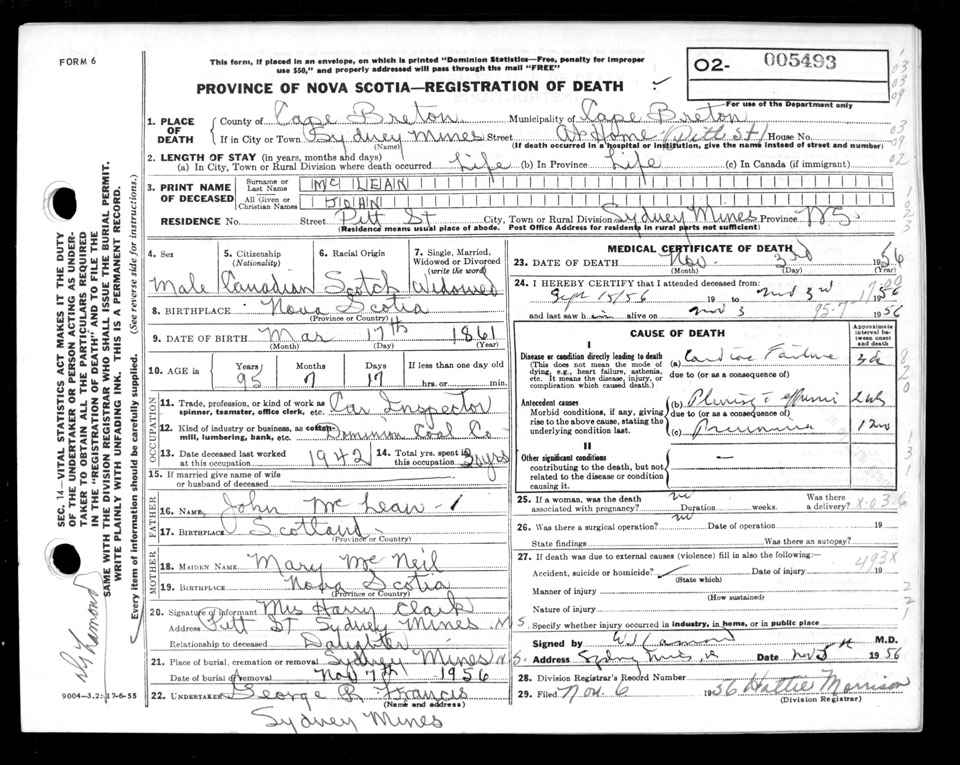 FORM 6
This form, if placed in an envelope, on which is printed "Dominion Statistics—Free, penalty for improper
use $50," and properly addressed will pass through the mail "FREE"
02- 005493
PROVINCE OF NOVA SCOTIA—REGISTRATION OF DEATH
For use of the Department only
1. PLACE OF DEATH County of Cape Breton Municipality of Cape Breton
If in City or Town Sydney Mines Street At Home (Pitt St) House No.
(Name) (If death occurred in a hospital or institution, give the name instead of street and number)
2. LENGTH OF STAY (in years, months and days)
(a) In City, Town or Rural Division where death occurred Life (b) In Province Life (c) In Canada (if immigrant)
3. PRINT NAME OF DECEASED Surname or Last Name MC LEAN
All Given or Christian Names
RESIDENCE No. Street Pitt St City, Town or Rural Division Sydney Mines Province NS.
(Residence means usual place of abode. Post Office Address for residents in rural parts not sufficient)
4. Sex 5. Citizenship (Nationality) 6. Racial Origin 7. Single, Married, Widowed or Divorced (write the word)
Male Canadian Scotch Widowed
8. BIRTHPLACE Nova Scotia
(Province or Country)
9. DATE OF BIRTH Mar 17th 1861
(Month) (Day) (Year)
10. AGE in Years Months Days If less than one day old
95 7 17 hrs. or min.
OCCUPATION
11. Trade, profession, or kind of work as spinner, teamster, office clerk, etc. Car Inspector
12. Kind of industry or business, as cotton-mill, lumbering, bank, etc. Dominion Coal Co
13. Date deceased last worked at this occupation 1942 14. Total yrs. spent in this occupation 30yrs
15. If married give name of wife or husband of deceased
FATHER
16. NAME John McLean
17. BIRTHPLACE Scotland
(Province or Country)
MOTHER
18. MAIDEN NAME Mary McNeil
19. BIRTHPLACE Nova Scotia
(Province or Country)
20. Signature of informant Mrs Harry Clark
Address Pitt St Sydney Mines N.S.
Relationship to deceased Daughter
21. Place of burial, cremation or removal Sydney Mines N.S.
Date of burial or removal Nov 7th 1956
22. UNDERTAKER George R. Francis
(Name and address)
Sydney Mines
9004—3.2: 17-6-55
MEDICAL CERTIFICATE OF DEATH
23. DATE OF DEATH Nov. 3rd 1956
(Month) (Day) (Year)
24. I HEREBY CERTIFY that I attended deceased from:
Sept 15/56 19 to Nov 3rd 1956
and last saw him alive on Nov 3 1956
95-7-17
CAUSE OF DEATH
Approximate interval between onset and death
I
Disease or condition directly leading to death (a) Cardiac Failure 3d
(This does not mean the mode of dying, e.g., heart failure, asthenia, etc. It means the disease, injury, or complication which caused death.)
due to (or as a consequence of)
Antecedent causes (b) Pleurisy c effusion 2 wks
Morbid conditions, if any, giving rise to the above cause, stating the underlying condition last.
due to (or as a consequence of)
(c) Pneumonia
II
Other significant conditions —
contributing to the death, but not related to the disease or condition causing it.
25. If a woman, was the death associated with pregnancy? no Duration weeks. Was there a delivery?
26. Was there a surgical operation? no Date of operation 19
State findings Was there an autopsy?
27. If death was due to external causes (violence) fill in also the following:—
493X
Accident, suicide or homicide? Date of injury 19
(State which)
Manner of injury
(How sustained)
Nature of injury
Specify whether injury occurred in industry, in home, or in public place
Signed by M.D.
Address Sydney Mines, NS Date Nov 5th 1956
28. Division Registrar's Record Number
29. Filed Nov. 6 1956 Hattie Morrison
(Division Registrar)
SEC. 14—VITAL STATISTICS ACT MAKES IT THE DUTY
OF THE UNDERTAKER OR PERSON ACTING AS UNDER-
TAKER TO OBTAIN ALL THE PARTICULARS REQUIRED
IN THE "REGISTRATION OF DEATH" AND TO FILE THE
SAME WITH THE DIVISION REGISTRAR WHO SHALL ISSUE THE BURIAL PERMIT.
WRITE PLAINLY WITH UNFADING INK. THIS IS A PERMANENT RECORD.
Every item of information should be carefully supplied. (See reverse side for instructions.)